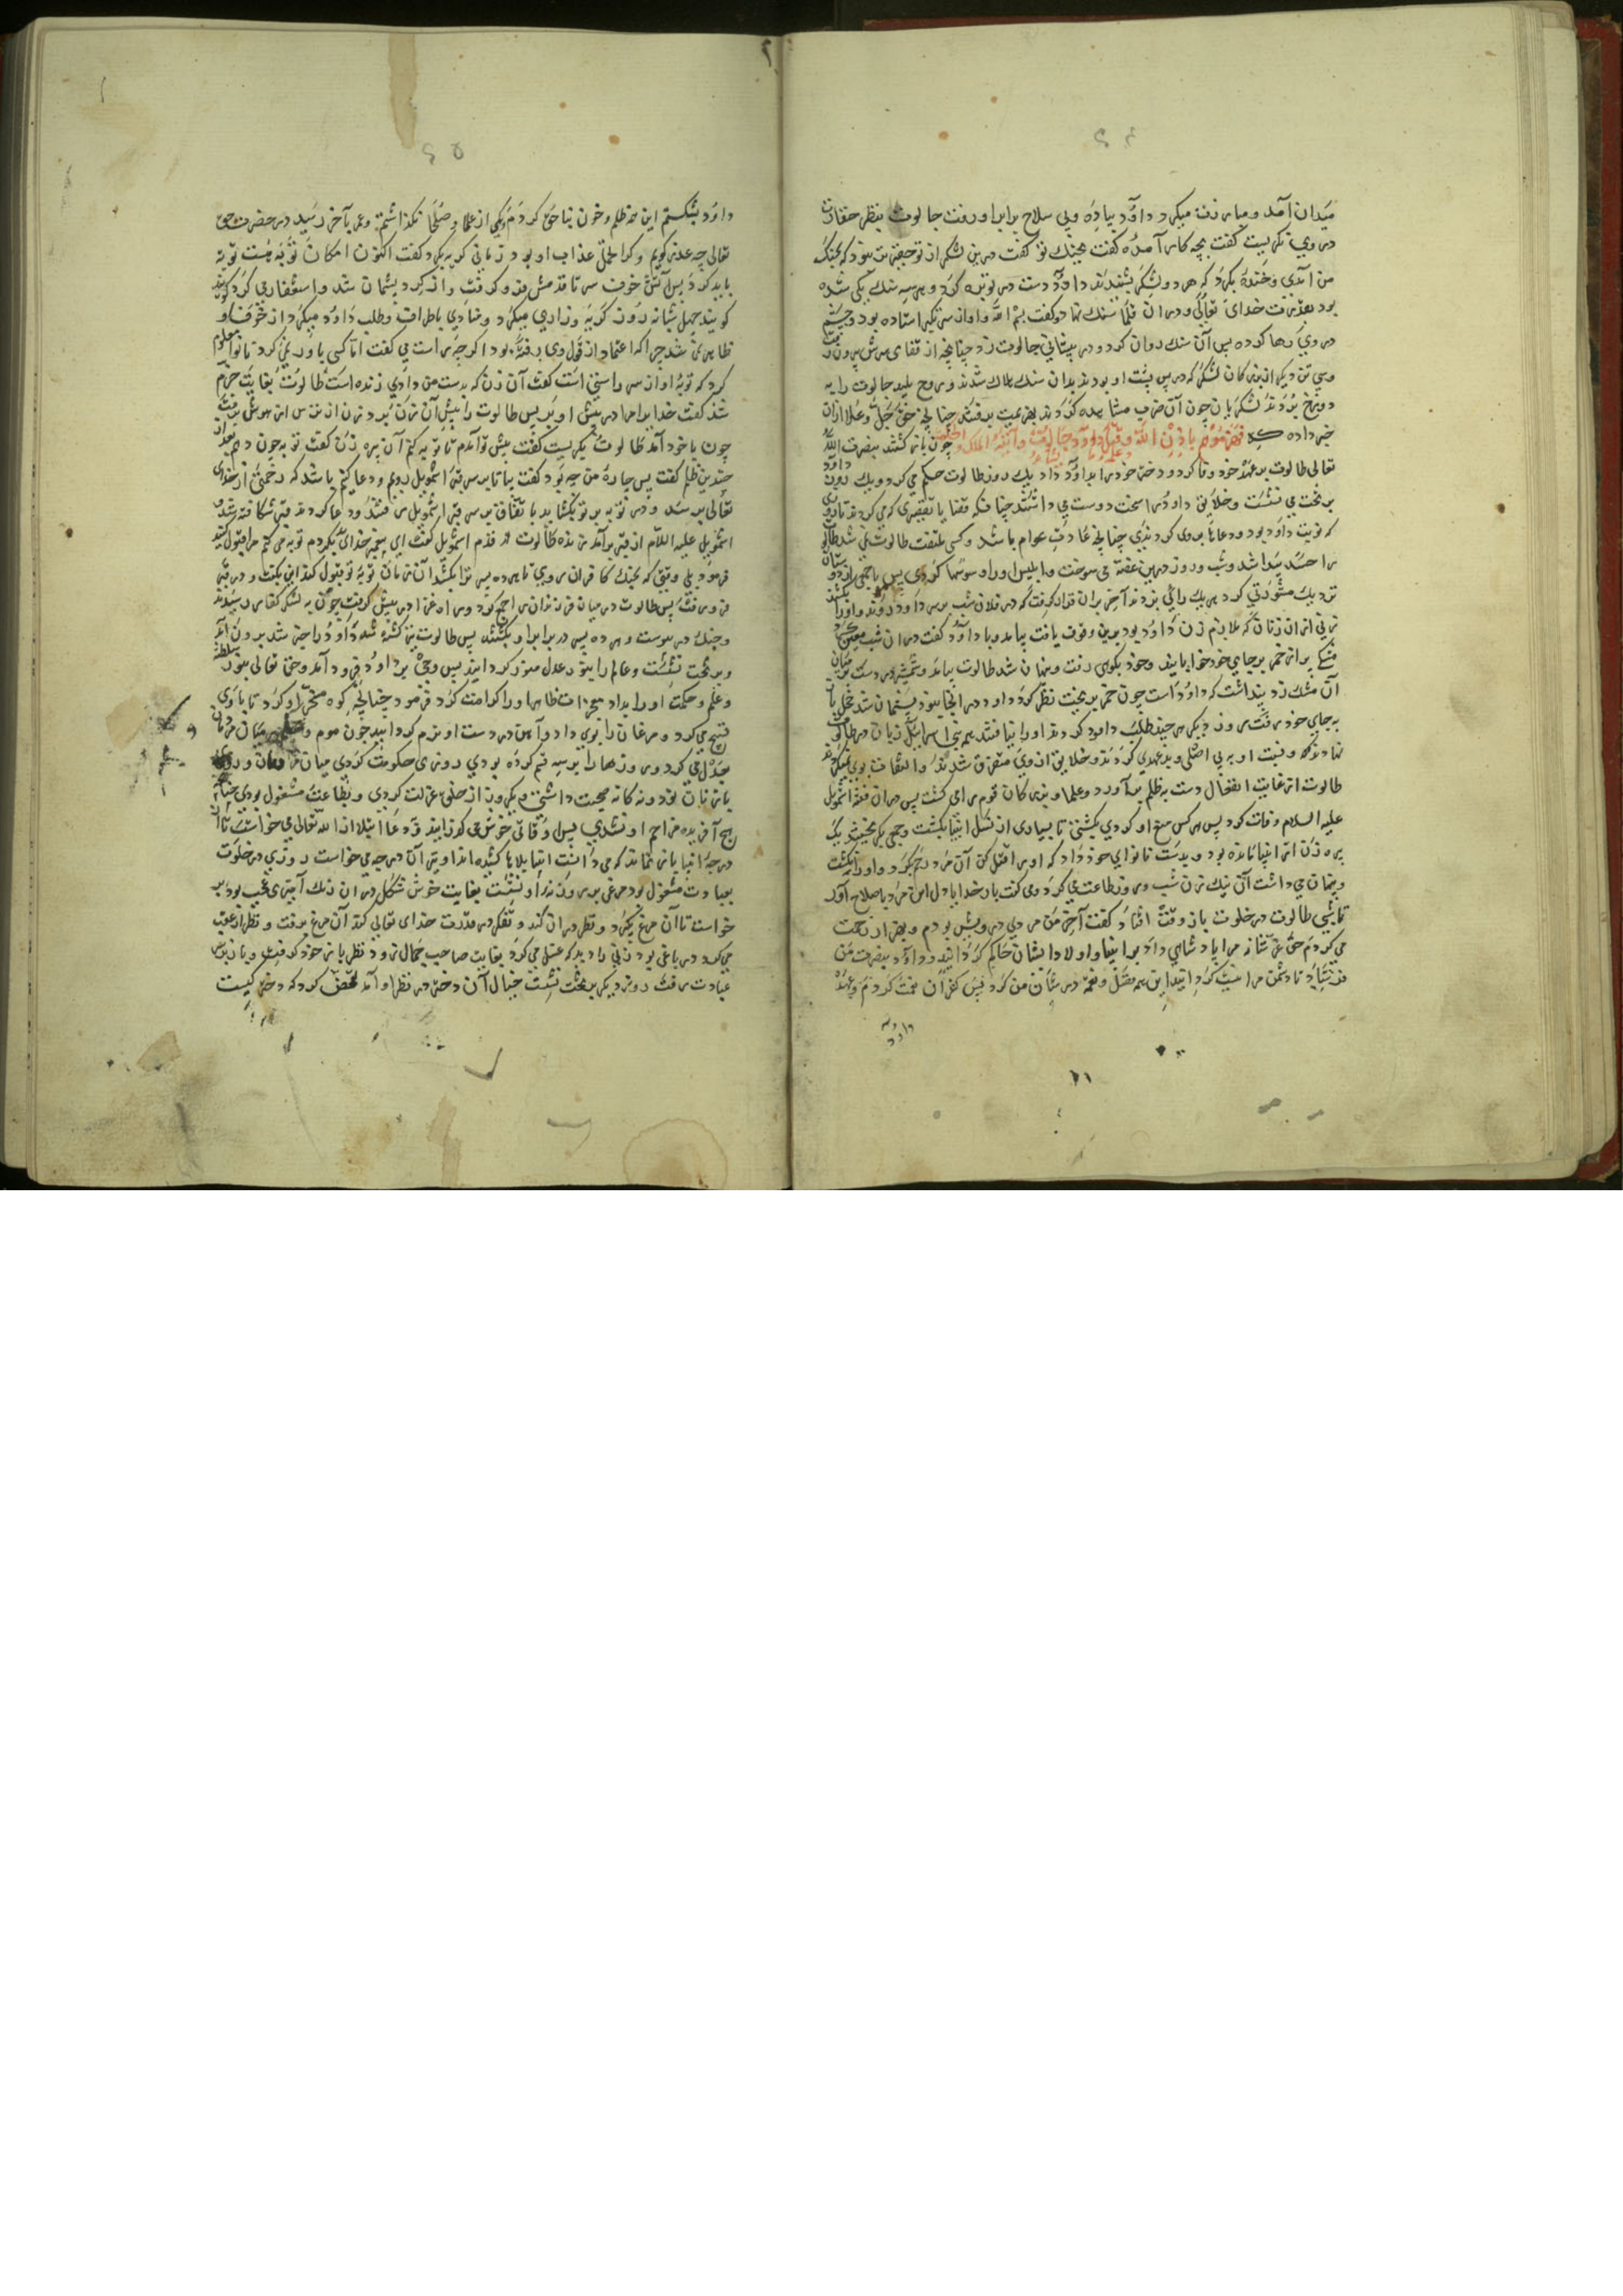 میدان آمد و مبارزت میکرد داود پیاده و بی سلاح برابر او رفت جالوت بنظر حقارت
در وی نکریست کفت بچه کار آمده کفت بجنک تو کفت درین لشکر از تو حقیرتر نبود که بجنک
من آمدی وخنده بکرد که هر دو لشکر بشنیدند داود دست در توبره کرد و هر سه سنک یکی شده
بود بقدرت خدای تعالی ودران فلاسنک نهاد وکفت بسم الله واواز تکبر استاده بود وچشم
در وی رها کرده پس آن سنک روان کرد و در پیشانی جالوت زد چنانچه از قفای سرش بیرون رفت
وسی تن دیکر از بزرکان لشکر که در پس پشت او بودند بدان سنک هلاک شدند و روح پلید جالوت را به
دوزخ بردند لشکریان چون آن ضرب مشاهده کردند بهزیمت برفتند چنانچه حق جل وعلا ازان
خبر داده که فهزموهم باذن الله وقتل داود جالوت وآتیه الله الملک والحکمة وعلمه مما یشاء چون باز کشتند بنصرت الله
تعالی طالوت بر عهد خود وفا کرد و دختر خود را بداود داد یک روز طالوت حکم می کرد و یک روز داود
بر تخت می نشست وخلایق داود را سخت دوست می داشتند
که نوبت داود بود ودعاها بر وی کردندی چنانچه عادت عوام باشد وکسی ملتفت طالوت نمی شد طالوت
را حسد پیدا شد وشب وروز درین غصه می سوخت وابلیس او را وسوسها کردی پس با جمعی از دوستان
نزدیک مشورتی کرد هر یک رائی بزدند آخر بران قرار کرفت که در فلان شب بر سر داود روند واورا بکشند
زنی ازان زنان که ملازم زن داود بود برین وقوف یافت بیامد وبا داود کفت دران شب معین
مشکی پر از خمر بر جای خود خوابانید وخود بکوهی رفت وپنهان شد طالوت بیامد وشمشیر در دست بر میان
آن مشک زد پنداشت که داود است چون خمر بریخت نظر کرد داود در انجا نبود پشیمان شد خجل باز
به جای خود رفت روز دیکر هر چند طلب داود کردند اورا نیافتند همه بنی اسرائیل زبان در طالوت
نهادند ونسبت او به بی اصلی وبدعهدی کردند وخلایق از وی متفرق شدند والتفات بوی نمیکردند
طالوت از غایت انفعال دست به ظلم برآورد وعلما وبزرکان قوم را می کشت پس دران فتنه اشمویل
علیه السلام وفات کرد پس هر کس منع او کردی بکشتی تا بسیاری از نسل انبیا بکشت
پیره زن از انبیا مانده بود وبدست نانوای خود داد که اورا قتل کن آن مرد رحم کرد واورا نکشت
وپنهان می داشت آن نیک زن شب وروز طاعت می کرد ومی کفت بار خدایا دل این مرد باصلاح آور
تا شبی طالوت در خلوت باز وقت افتاد کفت آخر من مردی درویش بودم
می کردم حق عز شانه مرا پادشاهی داد بر انبیا واولاد ایشان حاکم کردانید وداود بنصرت من
فرستاد تا دشمن مرا نیست کردانید این همه فضل ونعمة در شان من کرد پس کفران نعمت کردم وعهد
داود
داود بشکستم این همه ظلم وخون بناحق کردم ویکی از علما وصلحا نکذاشتم وعمر بآخر رسید در حضرت حق
تعالی چه عذر کویم وکرا تحمل عذاب او بود زمانی کریه بکرد کفت اکنون امکان توبه هست توبه
باید کرد پس آتش خوف سر تا قدمش فرو کرفت وازکرد پشیمان شد واستغفار می کرد کویند
کویند چهل شبانه روز کریه وزاری میکرد ومنادی باطراف وطلب داود میکرد از خوف او
ظاهر نمی شد چرا که اعتماد از قول وی رفته بود اکرچه راست می کفت اما کسی باور نمی کرد تا نوا معلوم
کرد که توبه او از سر راستی است کفت آن زن که بدست من دادی زنده است طالوت بغایت خرم
شد کفت خدایرا مرا در پیش او بر پس طالوت را پیش آن زن برد زن از ترس از هوش برفت
چون باخود آمد طالوت بکریست کفت پیش تو آمدم تا توبه کنم آن پیره زن کفت توبه چون دهم بعد از
چندین ظلم کفت پس چاره من چه بود کفت بیا تا بر سر قبر اشمویل رویم ودعا کنیم باشد که رخصتی از خدای
تعالی برسد ودر توبه بر تو بکشاید باتفاق بر سر قبر اشمویل رفتند ودعا کردند قبر شکافته شد و
اشمویل علیه السلام از قبر برآمد زنده طالوت در قدم اشمویل کفت ای پیغمبر خدای بد کردم توبه می کنم مرا قبول کنند
فرمود بلی وقتی که بجنک کافران روی تا هر ده پسر ترا بکشند آن زمان توبه تو قبول کند این بکفت ودر قبر
فرو رفت پس طالوت در میان فرزندان را جمع کرد وراه غزا در پیش کرفت چون به لشکر کفار رسیدند
وجنک در پیوست وهر ده پسر در برابر او بکشتند پس طالوت نیز کشته شد داود از احیه شد بیرون آمد
وبر تخت نشست وعالم را بنور عدل منور کردانید پس وحی بر داود فرود آمد وحق تعالی نبوت وسلطنة
وعلم وحکمت اورا بداد معجزات ظاهر اورا کرامت کرد فرمود چنانچه کوه مسخر او کرد تا با وی
تسبیح می کرد ومرغان را بوی داد وآهن در دست او نرم کردانید چون موم میان مردمان
عدل می کرد وروزها را بر سه قسم کرده بودی روزی حکومت کردی میان
با زنان نود ونه کانه صحبت داشتی ویکروز از خلق عزلت کردی وبطاعت مشغول بودی چنانچه
هیچ آفریده مزاحم او نشدی پس اوقاتی خوش می کذرانید ودعا ابتلا از الله تعالی می خواست تا آن
درجه انبیا باز نماند که می دانست انبیا بلاها کشیده اند واین آن درجه می خواست روزی در خلوت
بعبادت مشغول بود مرغی بر روزنه او نشست بغایت خوش شکل در ان رنک آمیزی عجیب بود
خواست تا آن مرغ بکیرد ونظر دران کند وتفکر در قدرت خدای تعالی کند آن مرغ برفت ونظر از عقب
می کرد در باغی بود زنی را دید که غسل می کرد بغایت صاحب جمال زود نظر باز خود کرفت وباز بسر
عبادت رفت روز دیکر بر تخت نشست خیال آن دختر در نظر او آمد تفحص کرد که دختر کیست